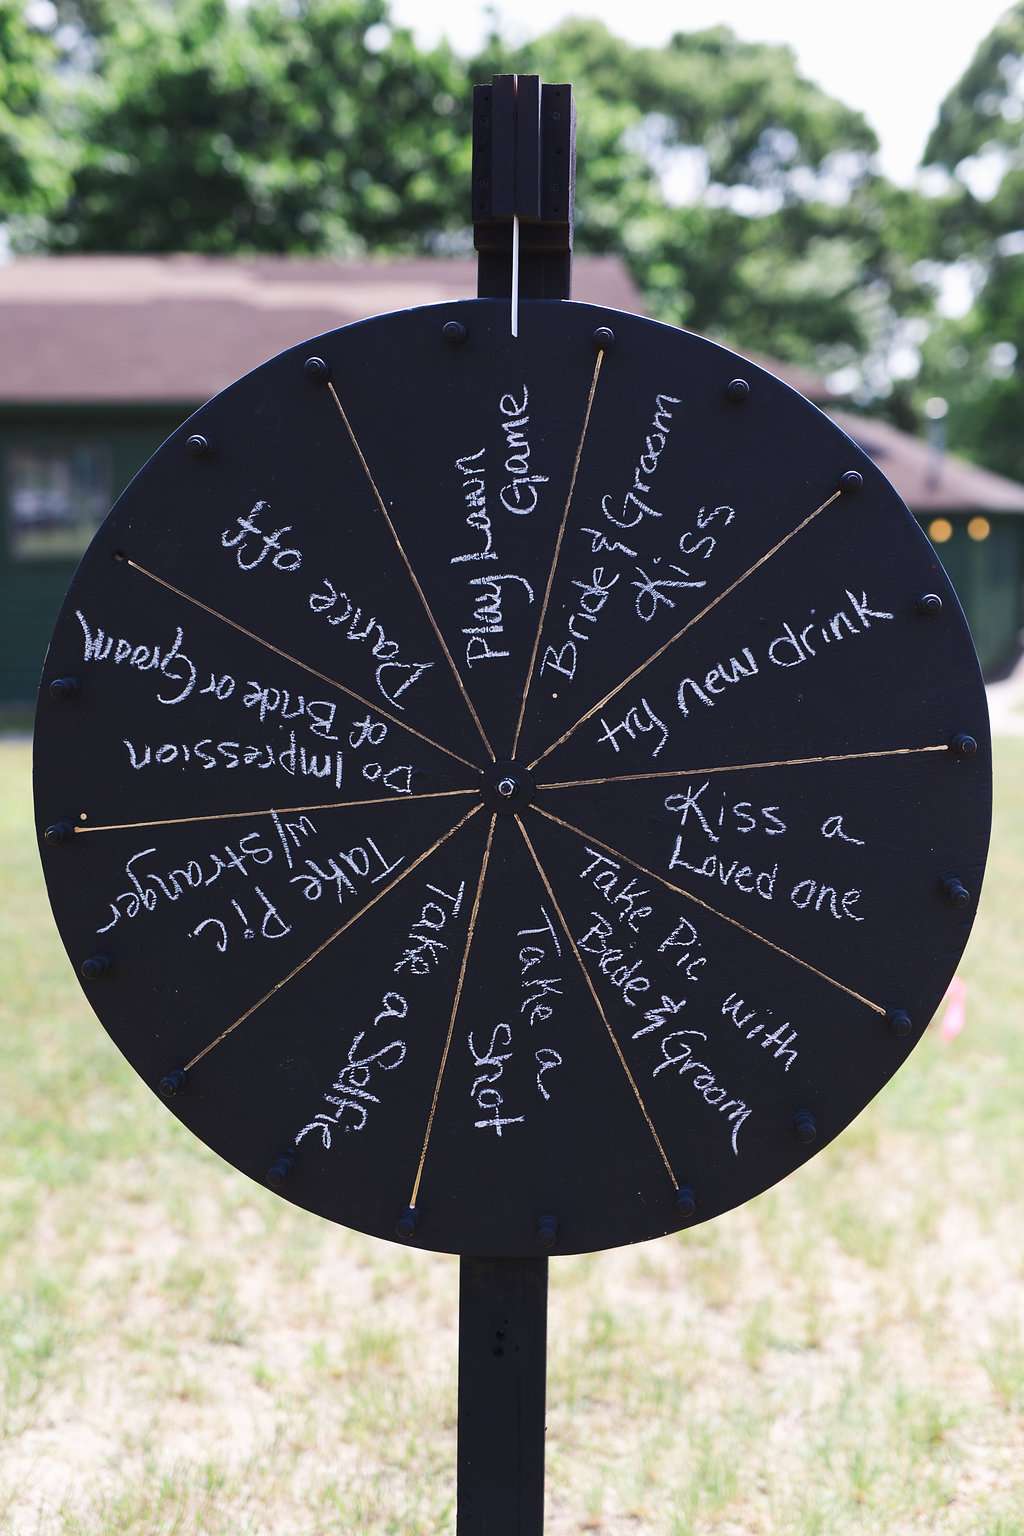 Play Lawn
Game
Bride & Groom
Kiss
try new drink
Kiss a
Loved one
Take Pic with
Bride & Groom
Take a
Shot
Take a Selfie
Take Pic
w/stranger
Do Impression
of Bride or Groom
Dance off